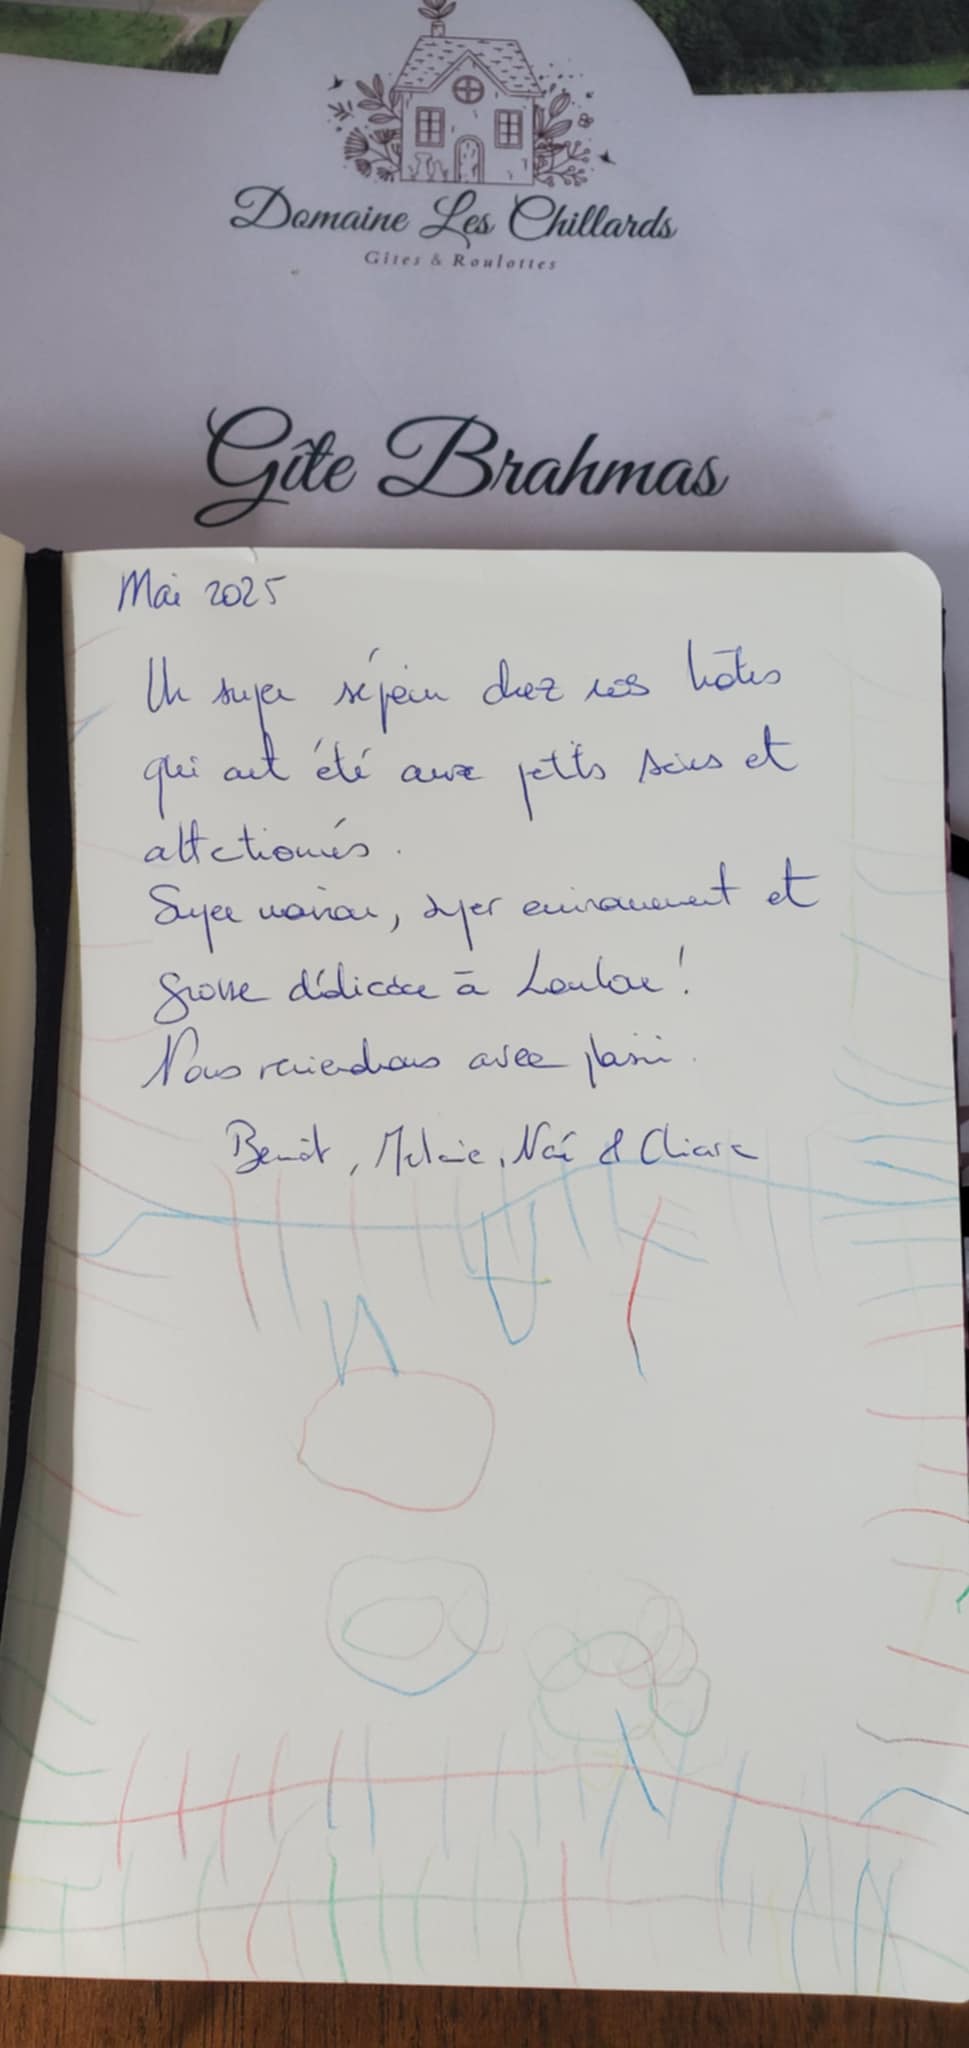 Domaine Les Chillards
Gîtes & Roulottes
Gîte Brahmas
Mai 2025
Un super séjour chez nos hôtes
qui ont été aux petits soins et
attentionnés.
Super maison, super environnement et
grosse dédicace à Loulou !
Nous reviendrons avec plaisir.
Benoît, Mélanie, Noé & Chiara